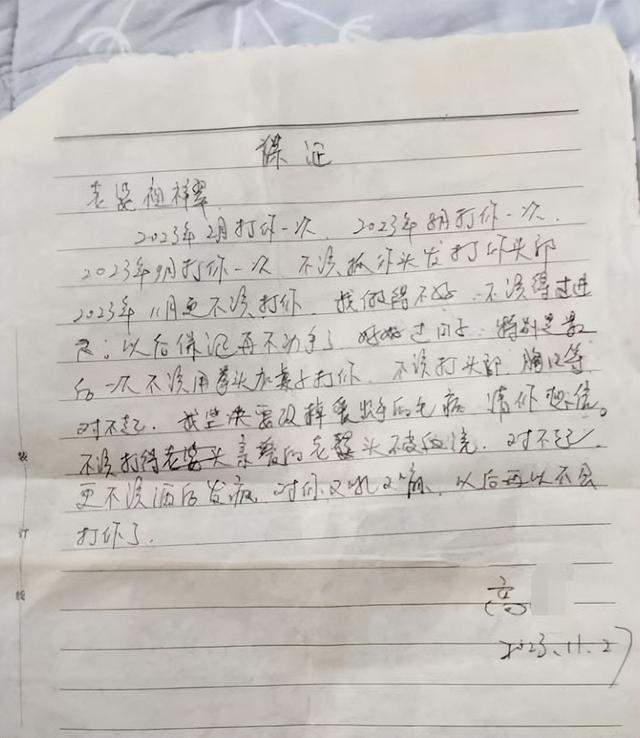 保证
老婆相祥翠
2023年2月打你一次、2023年8月打你一次、
2023年9月打你一次、不该抓你头发打你头部
2023年11月更不该打你、我做得不好、不该得过进
尺;以后保证再不动手了 好好过日子、特别是最
后一次不该用拳头加凳子打你、不该打头部、胸口等
对不起、我坚决要改掉爱出手的毛病 请你相信。
不该打得老婆头亲爱的老婆头破血流、对不起
更不该酒后发疯、对你又吼又 以后再以不会
打你了.
装
订
线
高
2023.11.27